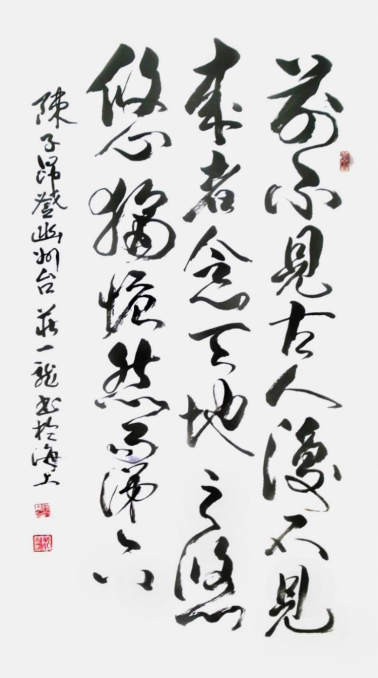 前不見古人後不見
來者念天地之悠
悠獨愴然而涕下
陳子昂登幽州台 莊一龍書於海上